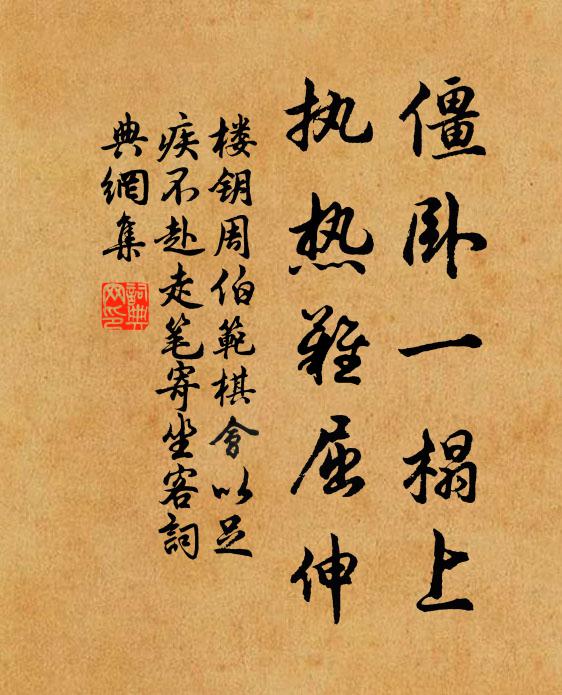 僵卧一榻上
执热难屈伸
楼钥周伯範棋會以足
疾不赴走笔寄坐客詞
典網集
詞典網印